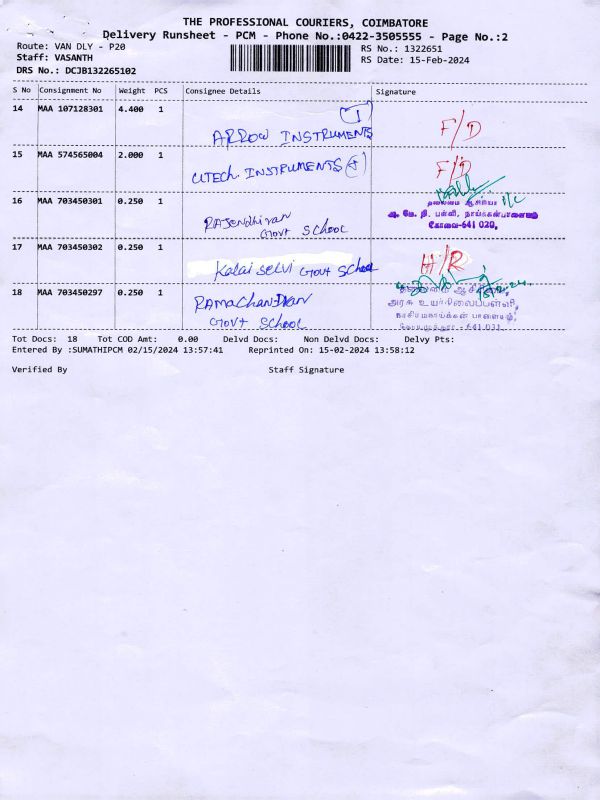 THE PROFESSIONAL COURIERS, COIMBATORE
Delivery Runsheet - PCM - Phone No.:0422-3505555 - Page No.:2
Route: VAN DLY - P20 RS No.: 1322651
Staff: VASANTH RS Date: 15-Feb-2024
DRS No.: DCJB132265102
S No Consignment No Weight PCS Consignee Details Signature
14 MAA 107128301 4.400 1 ARROW INSTRUMENTS F/D
15 MAA 574565004 2.000 1 UTech. INSTRUMENTS F/D
16 MAA 703450301 0.250 1 RAJendhiran
Govt School
தலைமை ஆசிரியர்
கோவை-641 020,
17 MAA 703450302 0.250 1 Kalai selvi Govt School H/R
18 MAA 703450297 0.250 1 RAMachandran
Govt School
அரசு உயர்நிலைப்பள்ளி,
நரசிம்மநாய்க்கன் பாளையம்,
கோயமுத்தூர் - 641 031.
Tot Docs: 18 Tot COD Amt: 0.00 Delvd Docs: Non Delvd Docs: Delvy Pts:
Entered By :SUMATHIPCM 02/15/2024 13:57:41 Reprinted On: 15-02-2024 13:58:12
Verified By Staff Signature